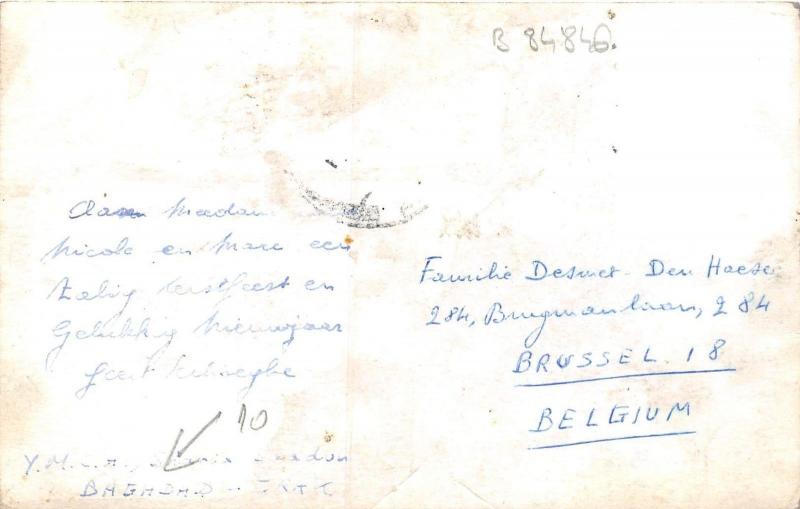 B 84846.
Aan Madame
Nicole en Marc een
Zalig kerstfeest en
Gelukkig Nieuwjaar
Geert
10
Y.M.C.A.,
BAGHDAD - IRAK
Familie Desmet-Den Haese
284, Brugmanlaan, 284
BRUSSEL. 18
BELGIUM